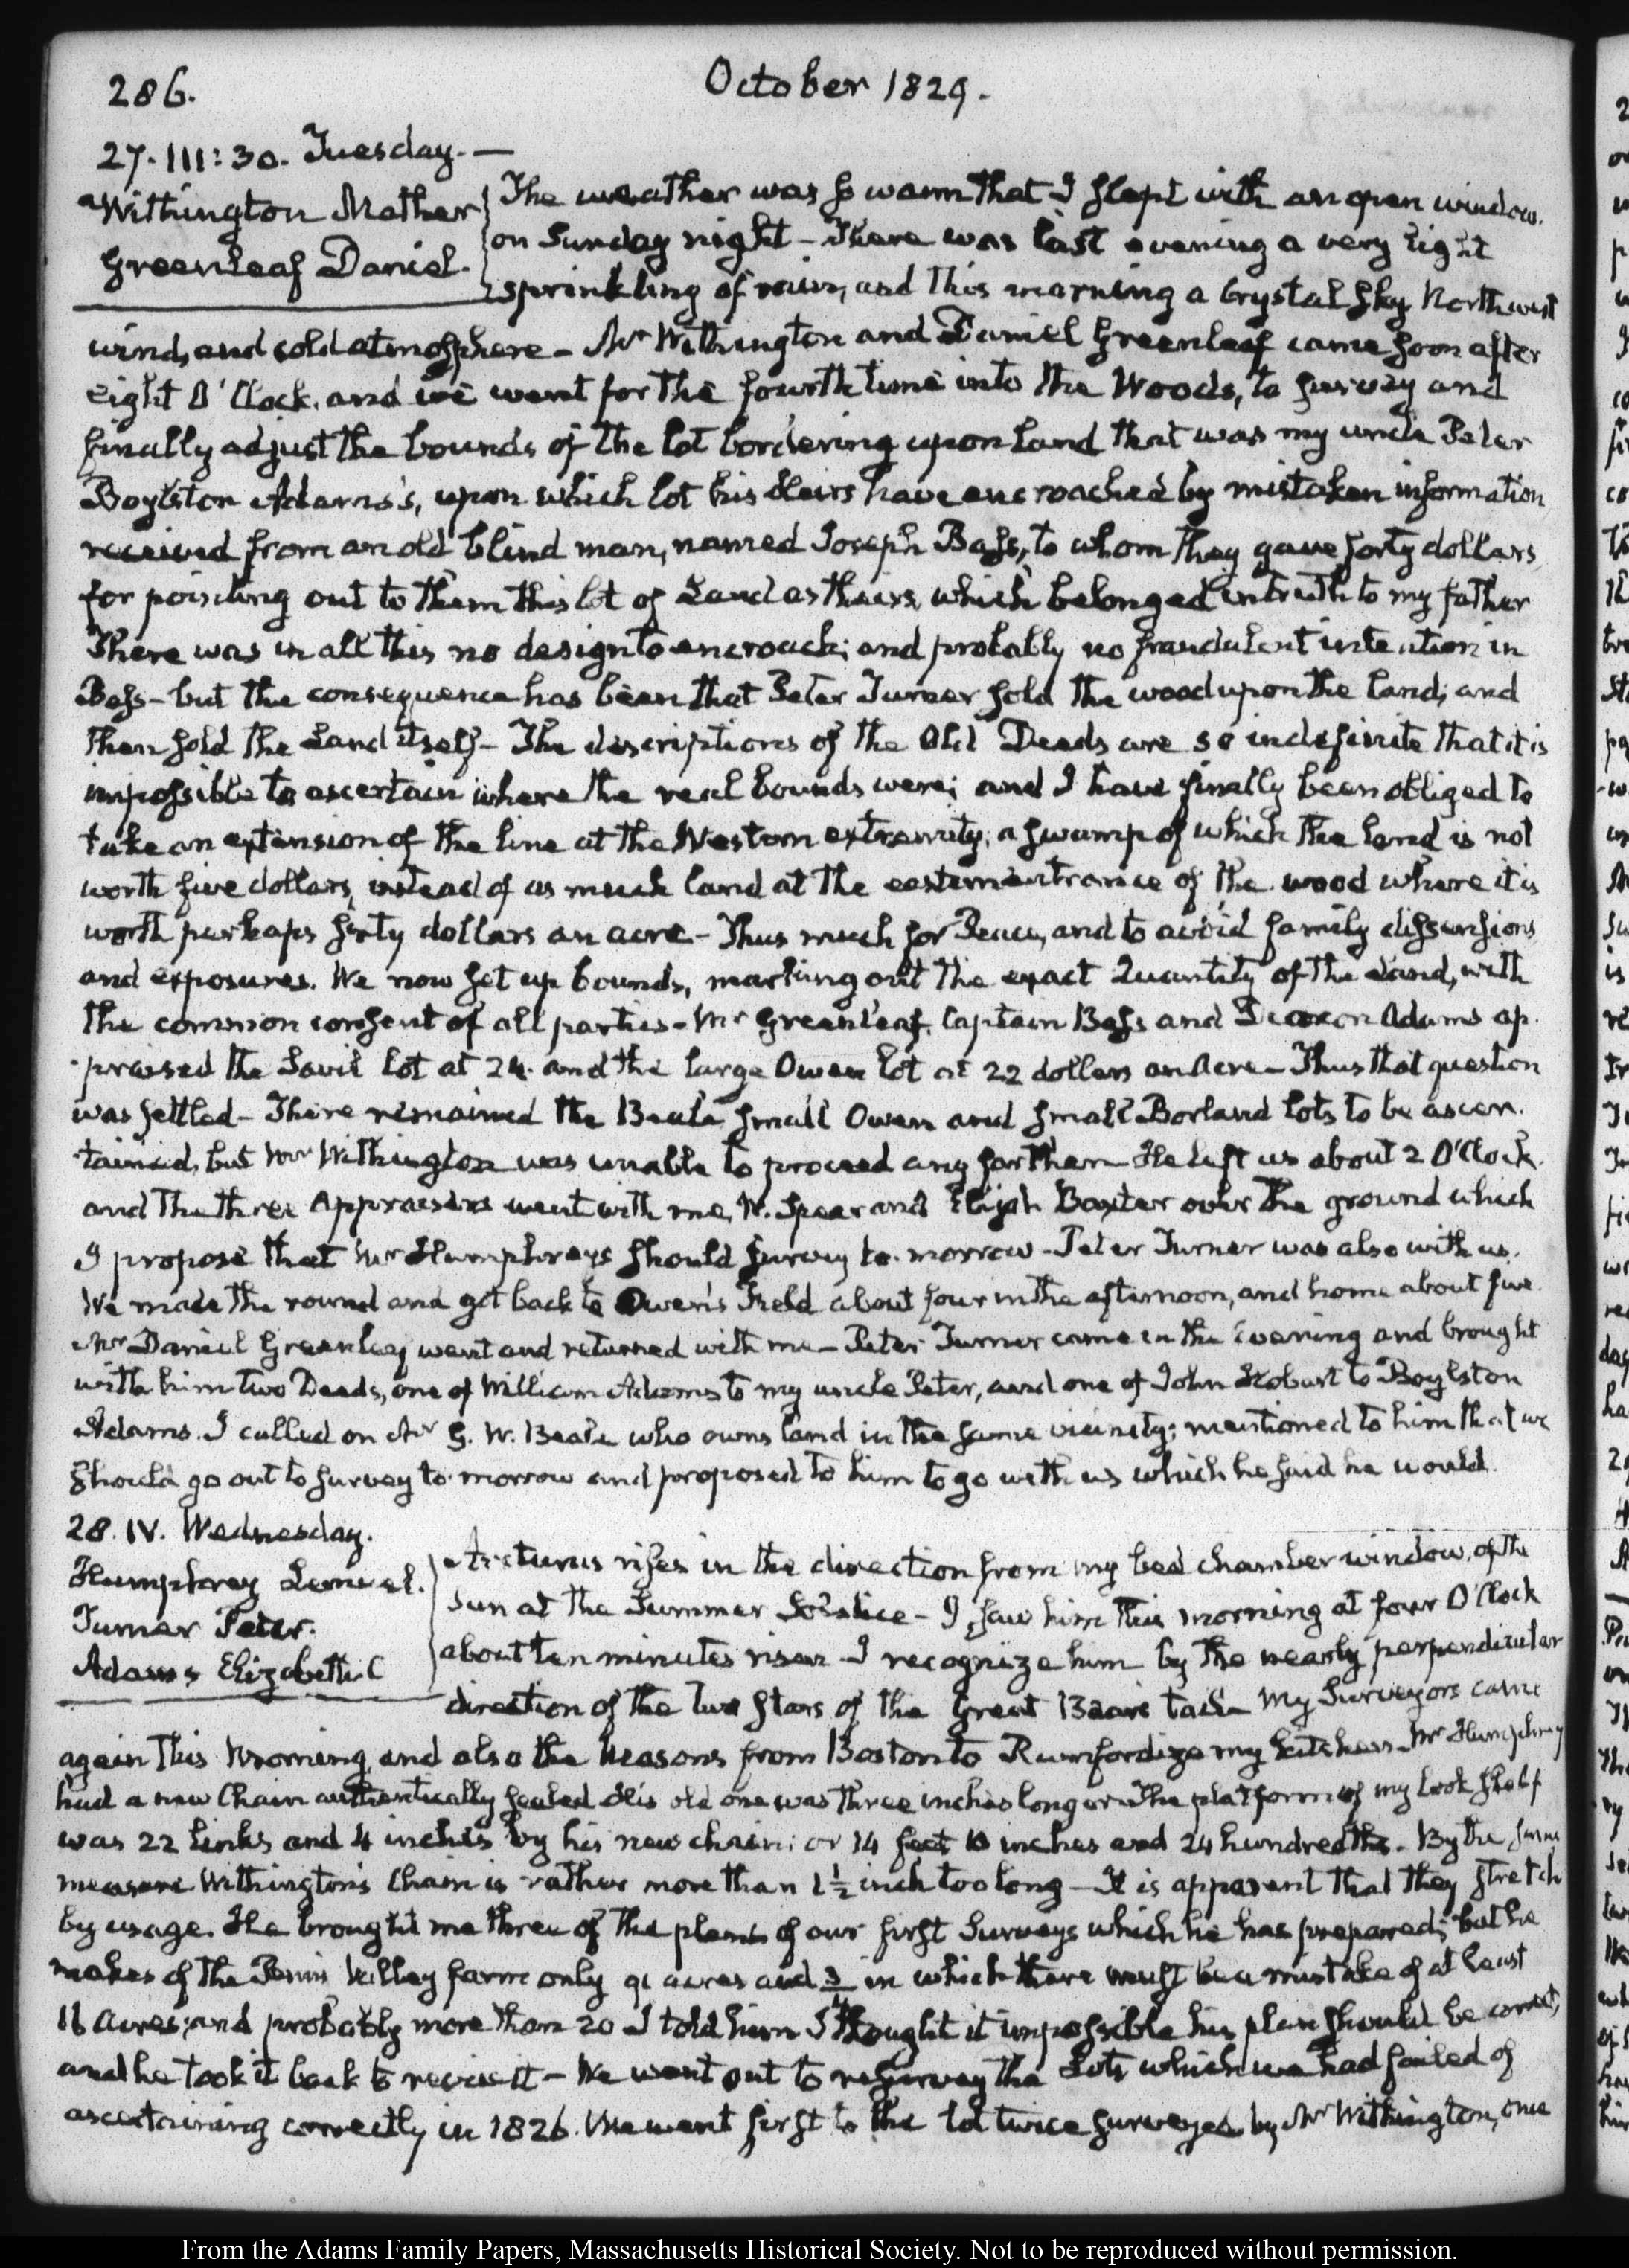 286.
October 1829.
27. III: 30. Tuesday. —
Withington Mather
Greenleaf Daniel.
The weather was so warm that I slept with an open window.
on Sunday night - There was last evening a very light
sprinkling of rain, and this morning a Crystal sky North west
wind, and cold atmosphere - Mr Withington and Daniel Greenleaf came soon after
eight O'Clock, and we went for the fourth time into the Woods, to survey and
finally adjust the bounds of the lot bordering upon land that was my uncle Peter
Boylston Adams's, upon which lot his Heirs have encroached by mistaken information
received from an old blind man, named Joseph Bass, to whom they gave forty dollars
for pointing out to them this lot of Land as theirs, which belonged in truth to my father
There was in all this no design to encroach; and probably no fraudulent intention in
Bass - but the consequence has been that Peter Turner sold the wood upon the land, and
then sold the Land itself - The descriptions of the Old Deeds are so indefinite that it is
impossible to ascertain where the real bounds were; and I have finally been obliged to
take an extension of the line at the Western extremity, a swamp of which the land is not
worth five dollars, instead of as much land at the eastern entrance of the wood where it is
worth perhaps forty dollars an acre - Thus much for Peace, and to avoid family dissensions
and exposures. We now set up bounds, marking out the exact Quantity of the Land, with
the common consent of all parties - Mr Greenleaf, Captain Bass and Deacon Adams ap-
praised the Savil lot at 24. and the large Owen lot at 22 dollars an Acre - Thus that question
was settled - There remained the Beale small Owen and small Borland lots to be ascer-
tained, but Mr Withington was unable to proceed any farther - He left us about 2 O'Clock.
and the three Appraisers went with me, W. Spear and Elijah Baxter over the ground which
I propose that Mr Humphreys should survey to-morrow - Peter Turner was also with us.
We made the round and got back to Owen's Field about four in the afternoon, and home about five.
Mr Daniel Greenleaf went and returned with me - Peter Turner came in the Evening and brought
with him two Deeds, one of William Adams to my uncle Peter, and one of John Hobart to Boylston
Adams. I called on Mr G. W. Beale who owns land in the same vicinity; mentioned to him that we
should go out to survey to-morrow and proposed to him to go with us which he said he would.
28. IV. Wednesday.
Humphrey Lemuel.
Turner Peter.
Adams Elizabeth C
Arcturus rises in the direction from my bed chamber window, of the
Sun at the Summer Solstice - I saw him this morning at four O'Clock
about ten minutes risen - I recognize him by the nearly perpendicular
direction of the two stars of the Great Bear's tail - My Surveyors came
again this Morning, and also the Masons from Boston to Rumfordize my kitchen - Mr Humphrey
had a new Chain authentically sealed His old one was three inches longer - The platform of my book shelf
was 22 Links and 4 inches by his new chain; or 14 feet 10 inches and 24 hundredths - By the same
measure Withington's Chain is rather more than 1 1/2 inch too long - It is apparent that they stretch
by usage. He brought me three of the plans of our first Surveys which he has prepared; but he
makes of the Penn's Hill farm only 91 acres and 3/4 in which there must be a mistake of at least
16 Acres; and probably more than 20 I told him I thought it impossible his plan should be correct,
and he took it back to revise it - We went out to resurvey the Lots which we had failed of
ascertaining correctly in 1826. We went first to the lot twice surveyed by Mr Withington, once
From the Adams Family Papers, Massachusetts Historical Society. Not to be reproduced without permission.